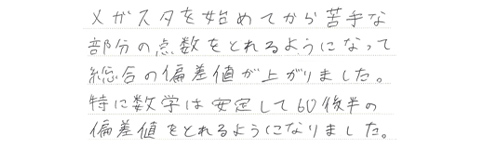 メガスタを始めてから苦手な
部分の点数をとれるようになって
総合の偏差値が上がりました。
特に数学は安定して60後半の
偏差値をとれるようになりました。